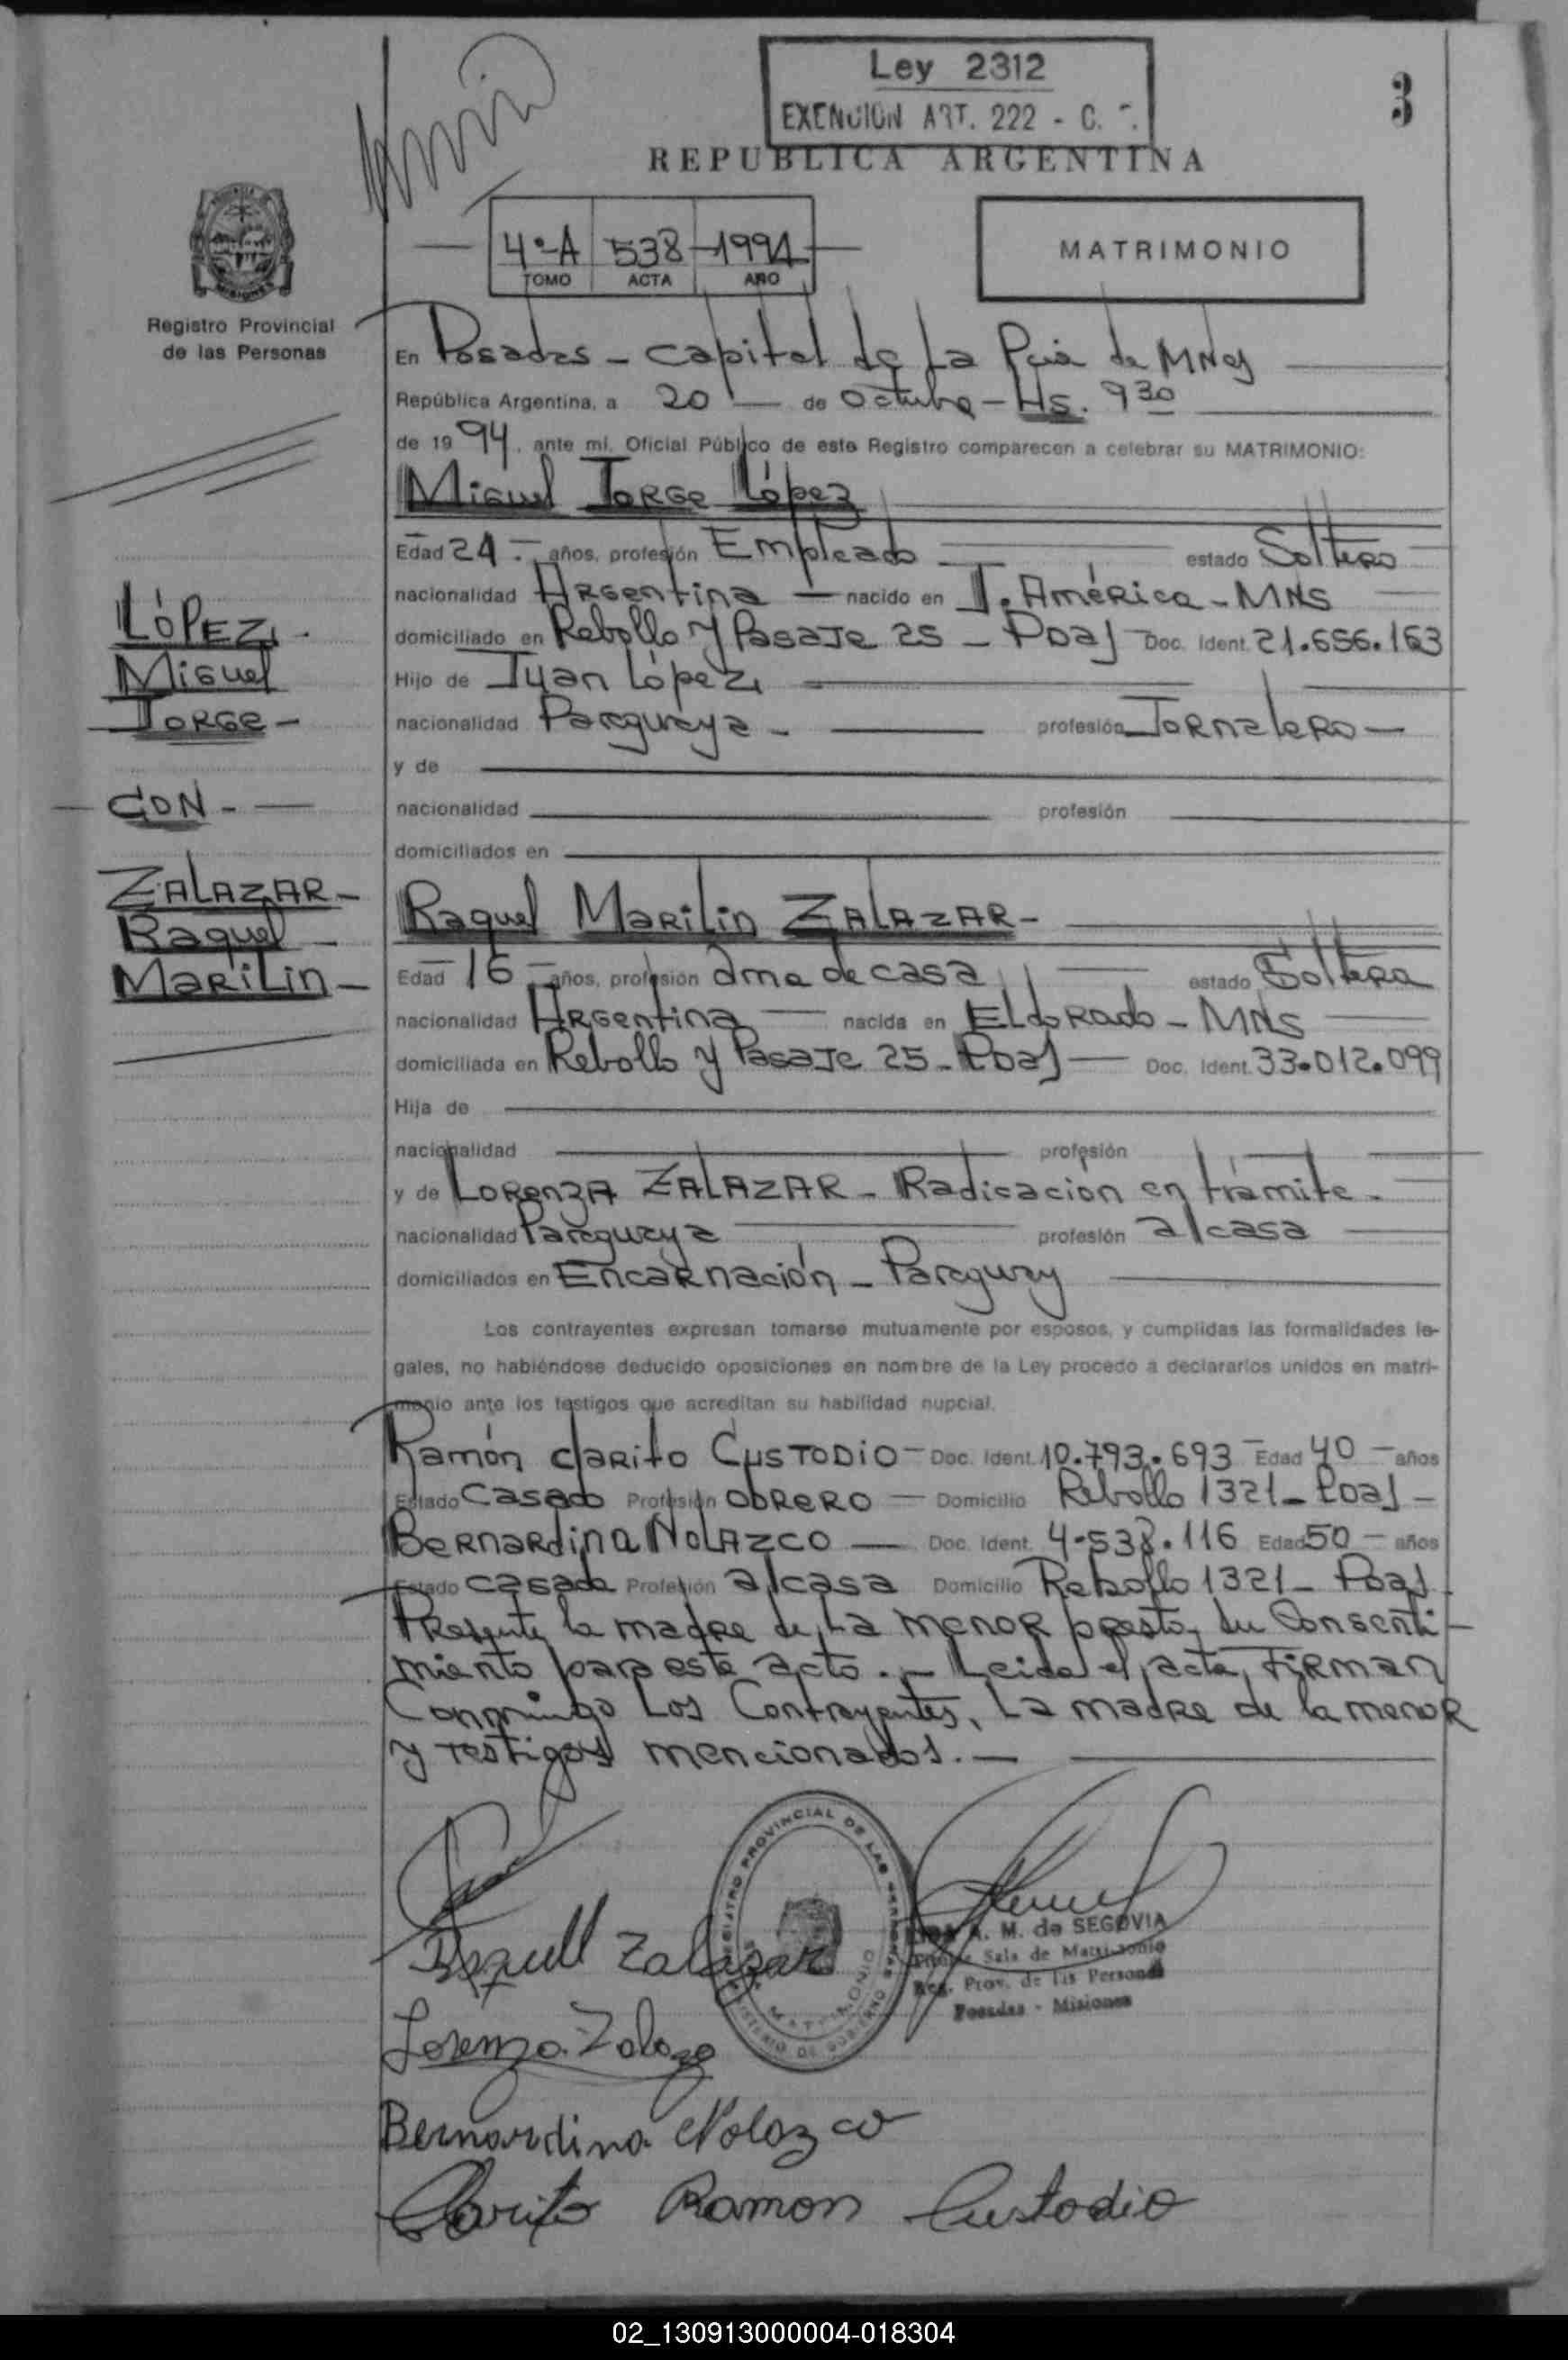 Ley 2312
EXENCION ART. 222 - C.
3
REPUBLICA ARGENTINA
4º-A 538 1994
TOMO ACTA AÑO
MATRIMONIO
Registro Provincial
de las Personas
En Posadas - Capital de La Pcia de MNes
República Argentina, a 20 de Octubre - Hs. 930
de 1994, ante mi, Oficial Público de este Registro comparecen a celebrar su MATRIMONIO:
Miguel Jorge López
Edad 24 - años, profesión Empleado estado Soltero
nacionalidad Argentina nacido en J. América - MNS
domiciliado en Rebollo y Pasaje 25 - Pdas Doc. Ident. 21.656.163
Hijo de Juan López
nacionalidad Paraguaya - profesión Jornalero -
y de
nacionalidad profesión
domiciliados en
LÓPEZ.
Miguel
Jorge -
- CON -
ZALAZAR -
Raquel -
Marilin -
Raquel Marilin ZALAZAR -
Edad 16 - años, profesión ama de casa estado Soltera
nacionalidad Argentina nacida en Eldorado - MNS
domiciliada en Rebollo y Pasaje 25 - Pdas Doc. Ident. 33.012.099
Hija de
nacionalidad profesión
y de Lorenza ZALAZAR - Radicacion en trámite -
nacionalidad Paraguaya profesión a/casa
domiciliados en Encarnación - Paraguay
Los contrayentes expresan tomarse mutuamente por esposos, y cumplidas las formalidades le-
gales, no habiéndose deducido oposiciones en nombre de la Ley procedo a declararlos unidos en matri-
monio ante los testigos que acreditan su habilidad nupcial.
Ramón Clarito CUSTODIO - Doc. Ident. 10.793.693 - Edad 40 - años
Estado Casado Profesión Obrero - Domicilio Rebollo 1321 - Pdas -
Bernardina NOLAZCO - Doc. Ident. 4.538.116 Edad 50 - años
Estado casada Profesión a/casa Domicilio Rebollo 1321 - Pdas
Presente la madre de La menor presta su Consenti-
miento para este acto. - Leida el acta, Firman
Conmigo Los Contrayentes, La madre de la menor
y testigos mencionados. -
REGISTRO PROVINCIAL DE LAS PERSONAS
MATRIMONIO
MINISTERIO DE GOBIERNO
A. M. de SEGOVIA
Sala de Matrimonio
Reg. Prov. de las Personas
Posadas - Misiones
Raquell Zalazar
Lorenza Zalaza
Bernardina Nolazco
Clarito Ramon Custodio
02_130913000004-018304